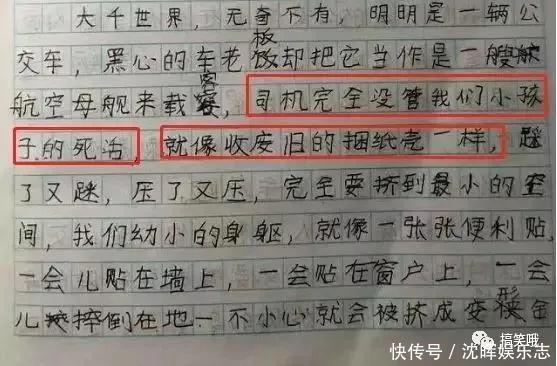 大千世界，无奇不有，明明是一辆公
交车，黑心的车老板却把它当作是一艘
航空母舰来载客，司机完全没管我们小孩
子的死活，就像收废旧的捆纸壳一样，踩
了又踩，压了又压，完全要挤到最小的空
间，我们幼小的身躯，就像一张张便利贴，
一会儿贴在墙上，一会贴在窗户上，一会
儿摔倒在地一不小心就会被挤成变形金
搞笑哦
快传号／沈晖娱乐志